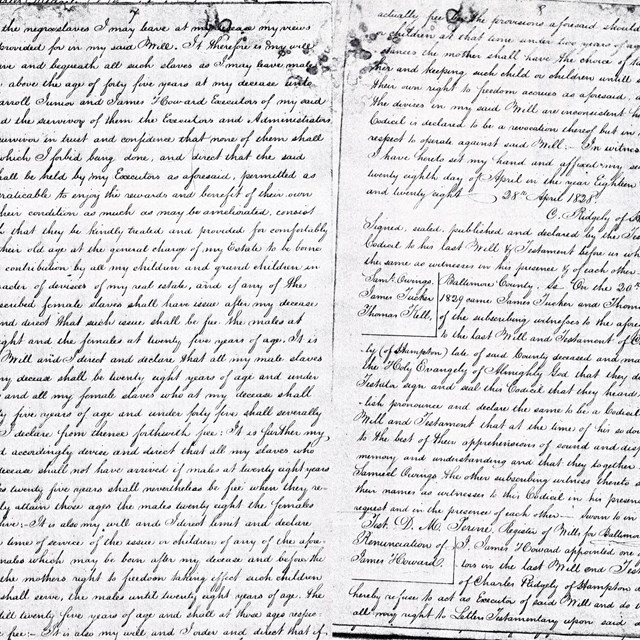 the negro slaves I may leave at my decease my views
provided for in my said Will. It therefore is my will
and bequeath all such slaves as I may leave male
above the age of forty five years at my decease unto
arroll Junior and James Howard Executors of my said
d the survivor of them the Executors and Administrators
survivor in trust and confidence that none of them shall
which I forbid being done, and direct that the said
hall be held by my Executors as aforesaid, permitted as
racticable to enjoy the rewards and benefit of their own
heir condition as much as may be ameliorated, consist
that they be kindly treated and provided for comfortably
their old age at the general charge of my Estate to be borne
contribution by all my children and grand children in
racter of devisees of my real estate, and if any of the
scribed female slaves shall have issue after my decease
nd direct that such issue shall be free. the males at
ight and the females at twenty five years of age. It is
Will and I direct and declare that all my male slaves
my decease shall be twenty eight years of age and under
and all my female slaves who at my decease shall
ty five years of age and under forty five shall severally
I declare from thence forthwith free:- It is further my
d accordingly devise and direct that all my slaves who
decease shall not have arrived if males at twenty eight years
es twenty five years shall nevertheless be free when they re-
ly attain those ages the males twenty eight the females
five:- It is also my will and I direct limit and declare
time of service of the issue or children of any of the afore-
males which may be born after my decease and before the
the mothers right to freedom taking effect such children
shall serve, the males until twenty eight years of age. the
till twenty five years of age and shall at those ages respec-
e free:- It is also my will and I order and direct that if
actually free by the provisions aforesaid should
children at that time under two years of a
stances the mother shall have the choice of ta
her and keeping such child or children untill
their own right to freedom accrues as aforesaid.
the devises in my said Will are inconsistent
Codicil is declared to be a revocation thereof but in
respect to operate against said Will:- In witness
I have hereto set my hand and affixed my se
twenty eighth day of April in the year Eighteen
and twenty eight - 28th April 1828.
C. Ridgely of
Signed, sealed, published and declared by the Tes
Codicil to his last Will & Testament before us wh
the same as witnesses in his presence & of each other
Saml. Owings.
James Tucker
Thomas Kell.
Baltimore County. Ss On the 20th
1829 came James Tucker and Thoma
of the subscribing witnesses to the afore
to the last Will and Testament of C
ly (of Hampton) late of said County deceased and ma
the Holy Evangely of Almighty God that they d
Testator sign and seal this Codicil that they heard
lish pronounce and declare the same to be a Codicil
Will and Testament that at the time of his so doi
to the best of their apprehensions of sound and disp
memory and understanding and that they together
Samuel Owings the other subscribing witness thereto s
their names as witnesses to this Codicil in his presence
request and in the presence of each other- Sworn to in
Test. D. M. Perine, Register of Wills for Baltimor
Renunciation of
James Howard.
I, James Howard appointed one
tors in the last Will and Test
of Charles Ridgely of Hampton
hereby refuse to act as Executor of said Will and do
all my right to Letters Testamentary upon said